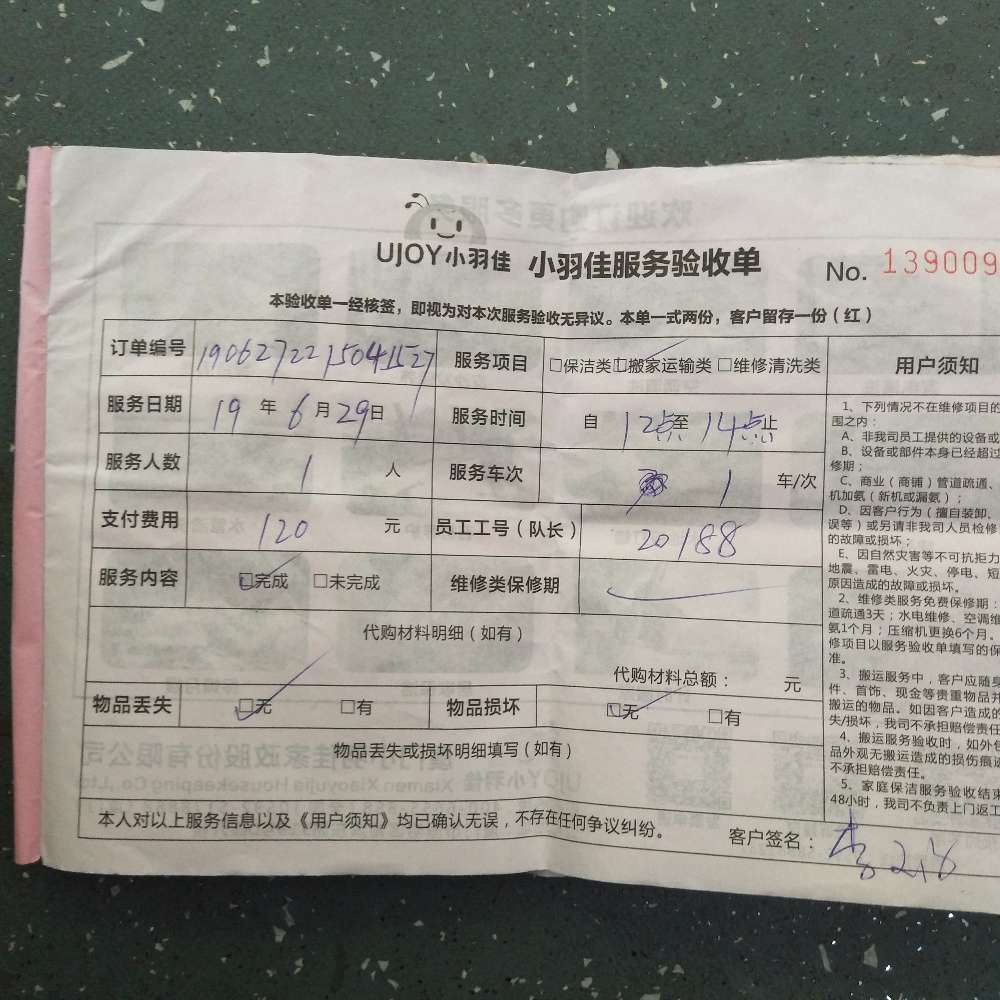 UJOY小羽佳 小羽佳服务验收单 No. 139009
本验收单一经核签，即视为对本次服务验收无异议。本单一式两份，客户留存一份（红）
订单编号 1906272215041527 服务项目 □保洁类 □搬家运输类 □维修清洗类 用户须知
服务日期 19 年 6 月 29 日 服务时间 自 12点至 14点止
服务人数 1 人 服务车次 1 车/次
支付费用 120 元 员工工号（队长） 20188
服务内容 □完成 □未完成 维修类保修期
代购材料明细（如有）
代购材料总额： 元
物品丢失 □无 □有 物品损坏 □无 □有
物品丢失或损坏明细填写（如有）
本人对以上服务信息以及《用户须知》均已确认无误，不存在任何争议纠纷。
客户签名：
1、下列情况不在维修项目的
围之内：
A、非我司员工提供的设备或
B、设备或部件本身已经超过
修期；
C、商业（商铺）管道疏通、
机加氨（新机或漏氨）；
D、因客户行为（擅自装卸、
误等）或另请非我司人员检修
的故障或损坏；
E、因自然灾害等不可抗拒力
地震、雷电、火灾、停电、短
原因造成的故障或损坏。
2、维修类服务免费保修期：
道疏通3天；水电维修、空调维
氨1个月；压缩机更换6个月。
修项目以服务验收单填写的保
准。
3、搬运服务中，客户应随身
件、首饰、现金等贵重物品并
搬运的物品。如因客户造成的
失/损坏，我司不承担赔偿责任
4、搬运服务验收时，如外包
品外观无搬运造成的损伤痕迹
不承担赔偿责任。
5、家庭保洁服务验收结束
48小时，我司不负责上门返工